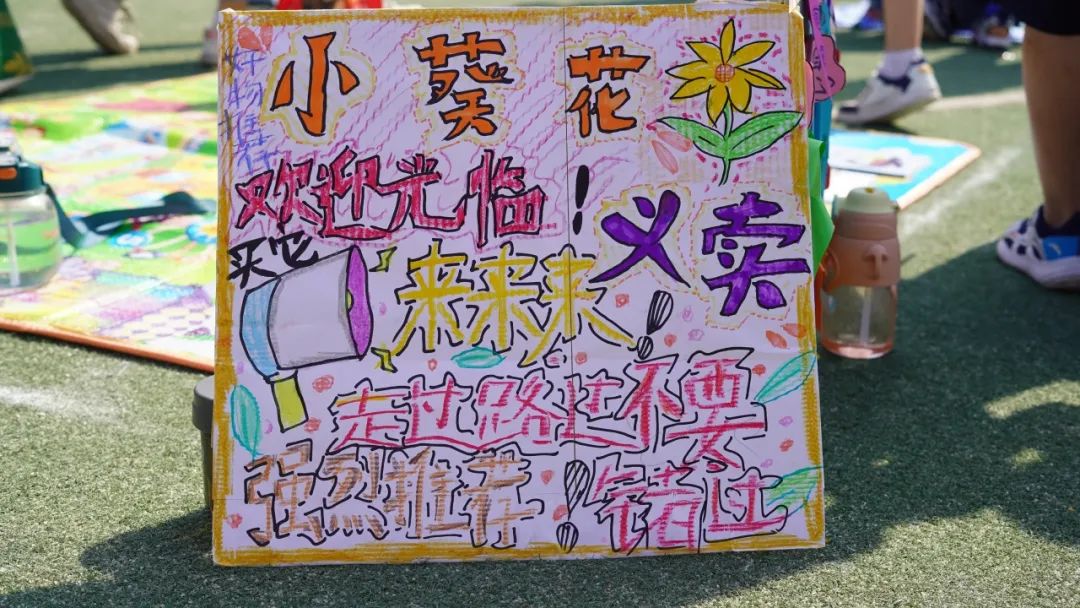 小葵花
好物推荐
欢迎光临!
义卖
买它
来来来!
走过路过不要
错过
强烈推荐!